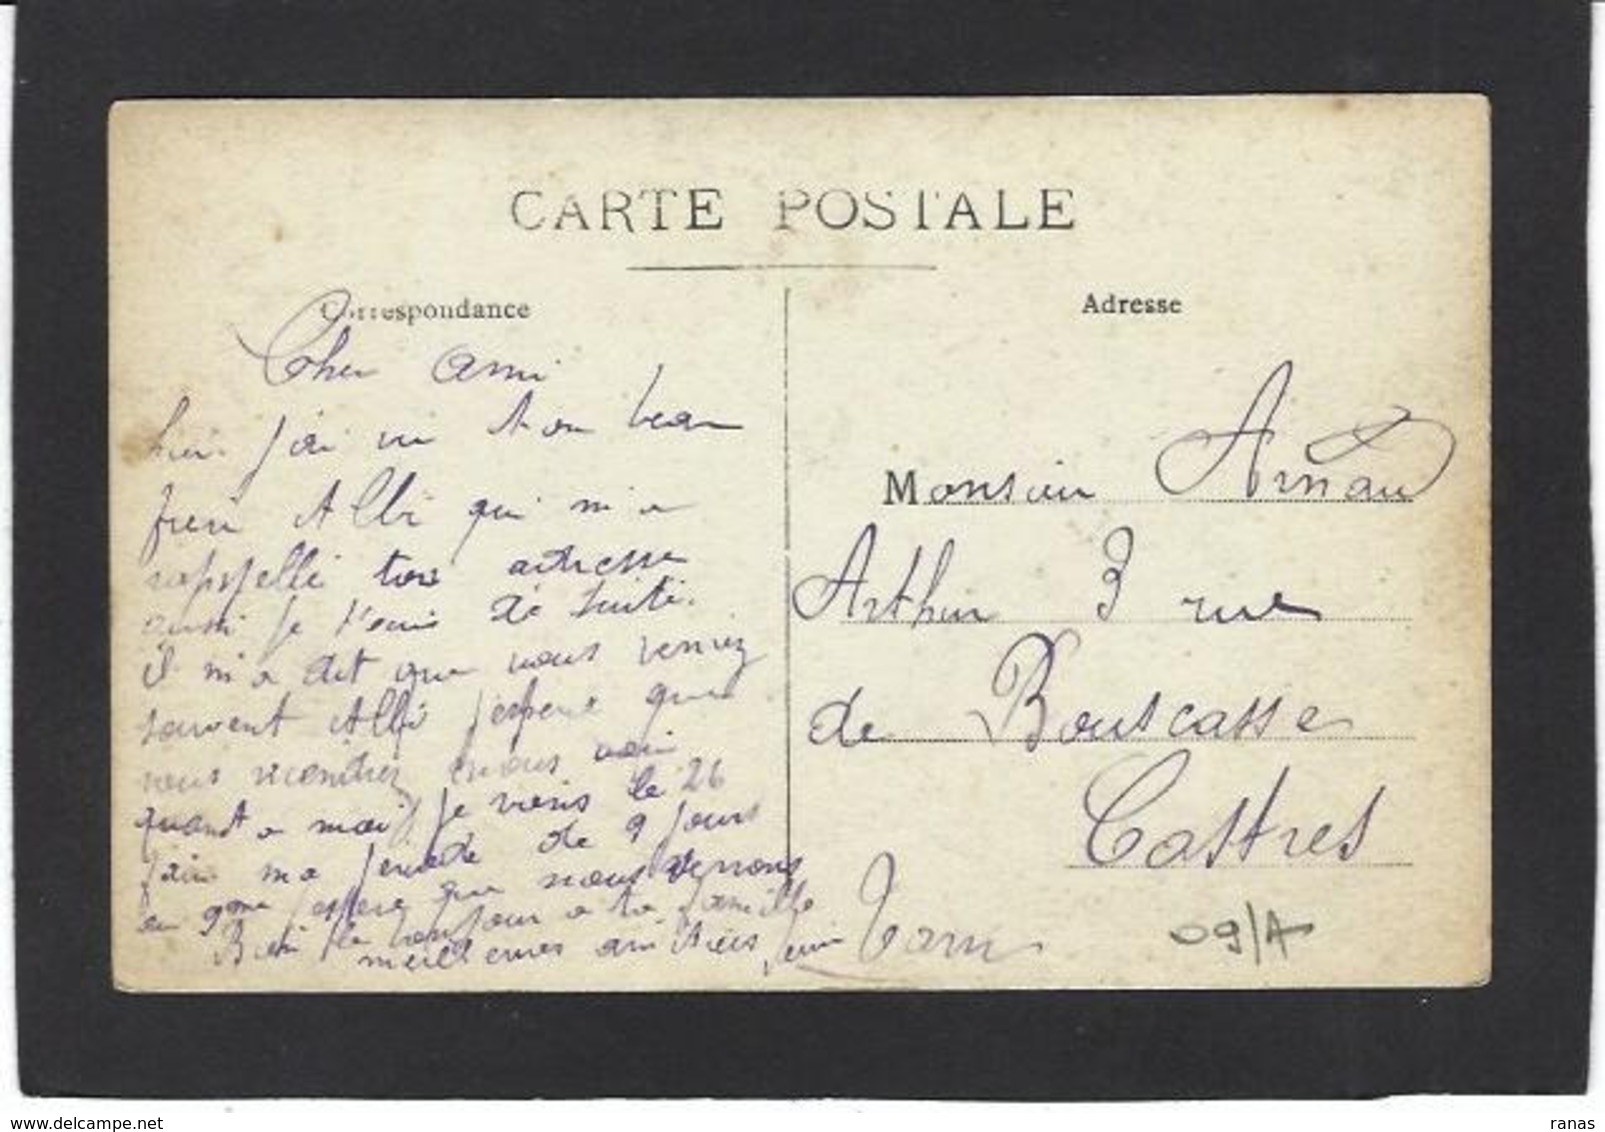 CARTE POSTALE
Correspondance
Adresse
Cher ami
hier j'ai vu ton beau
frère Albi qui m'a
rappellé ton adresse
aussi je t'écris de suite.
il m'a dit que vous veniez
souvent Albi j'espère que
vous viendrez nous voir
quant a moi je viens le 26
faire ma periode de 9 jours
au 9me j'espere que nous verrons
Bien le bonjour a ta famille
meilleures amitiées
Monsieur Arnaud
Arthur 3 rue
de Bouscasse
Castres
Tarn
09/A
ranas